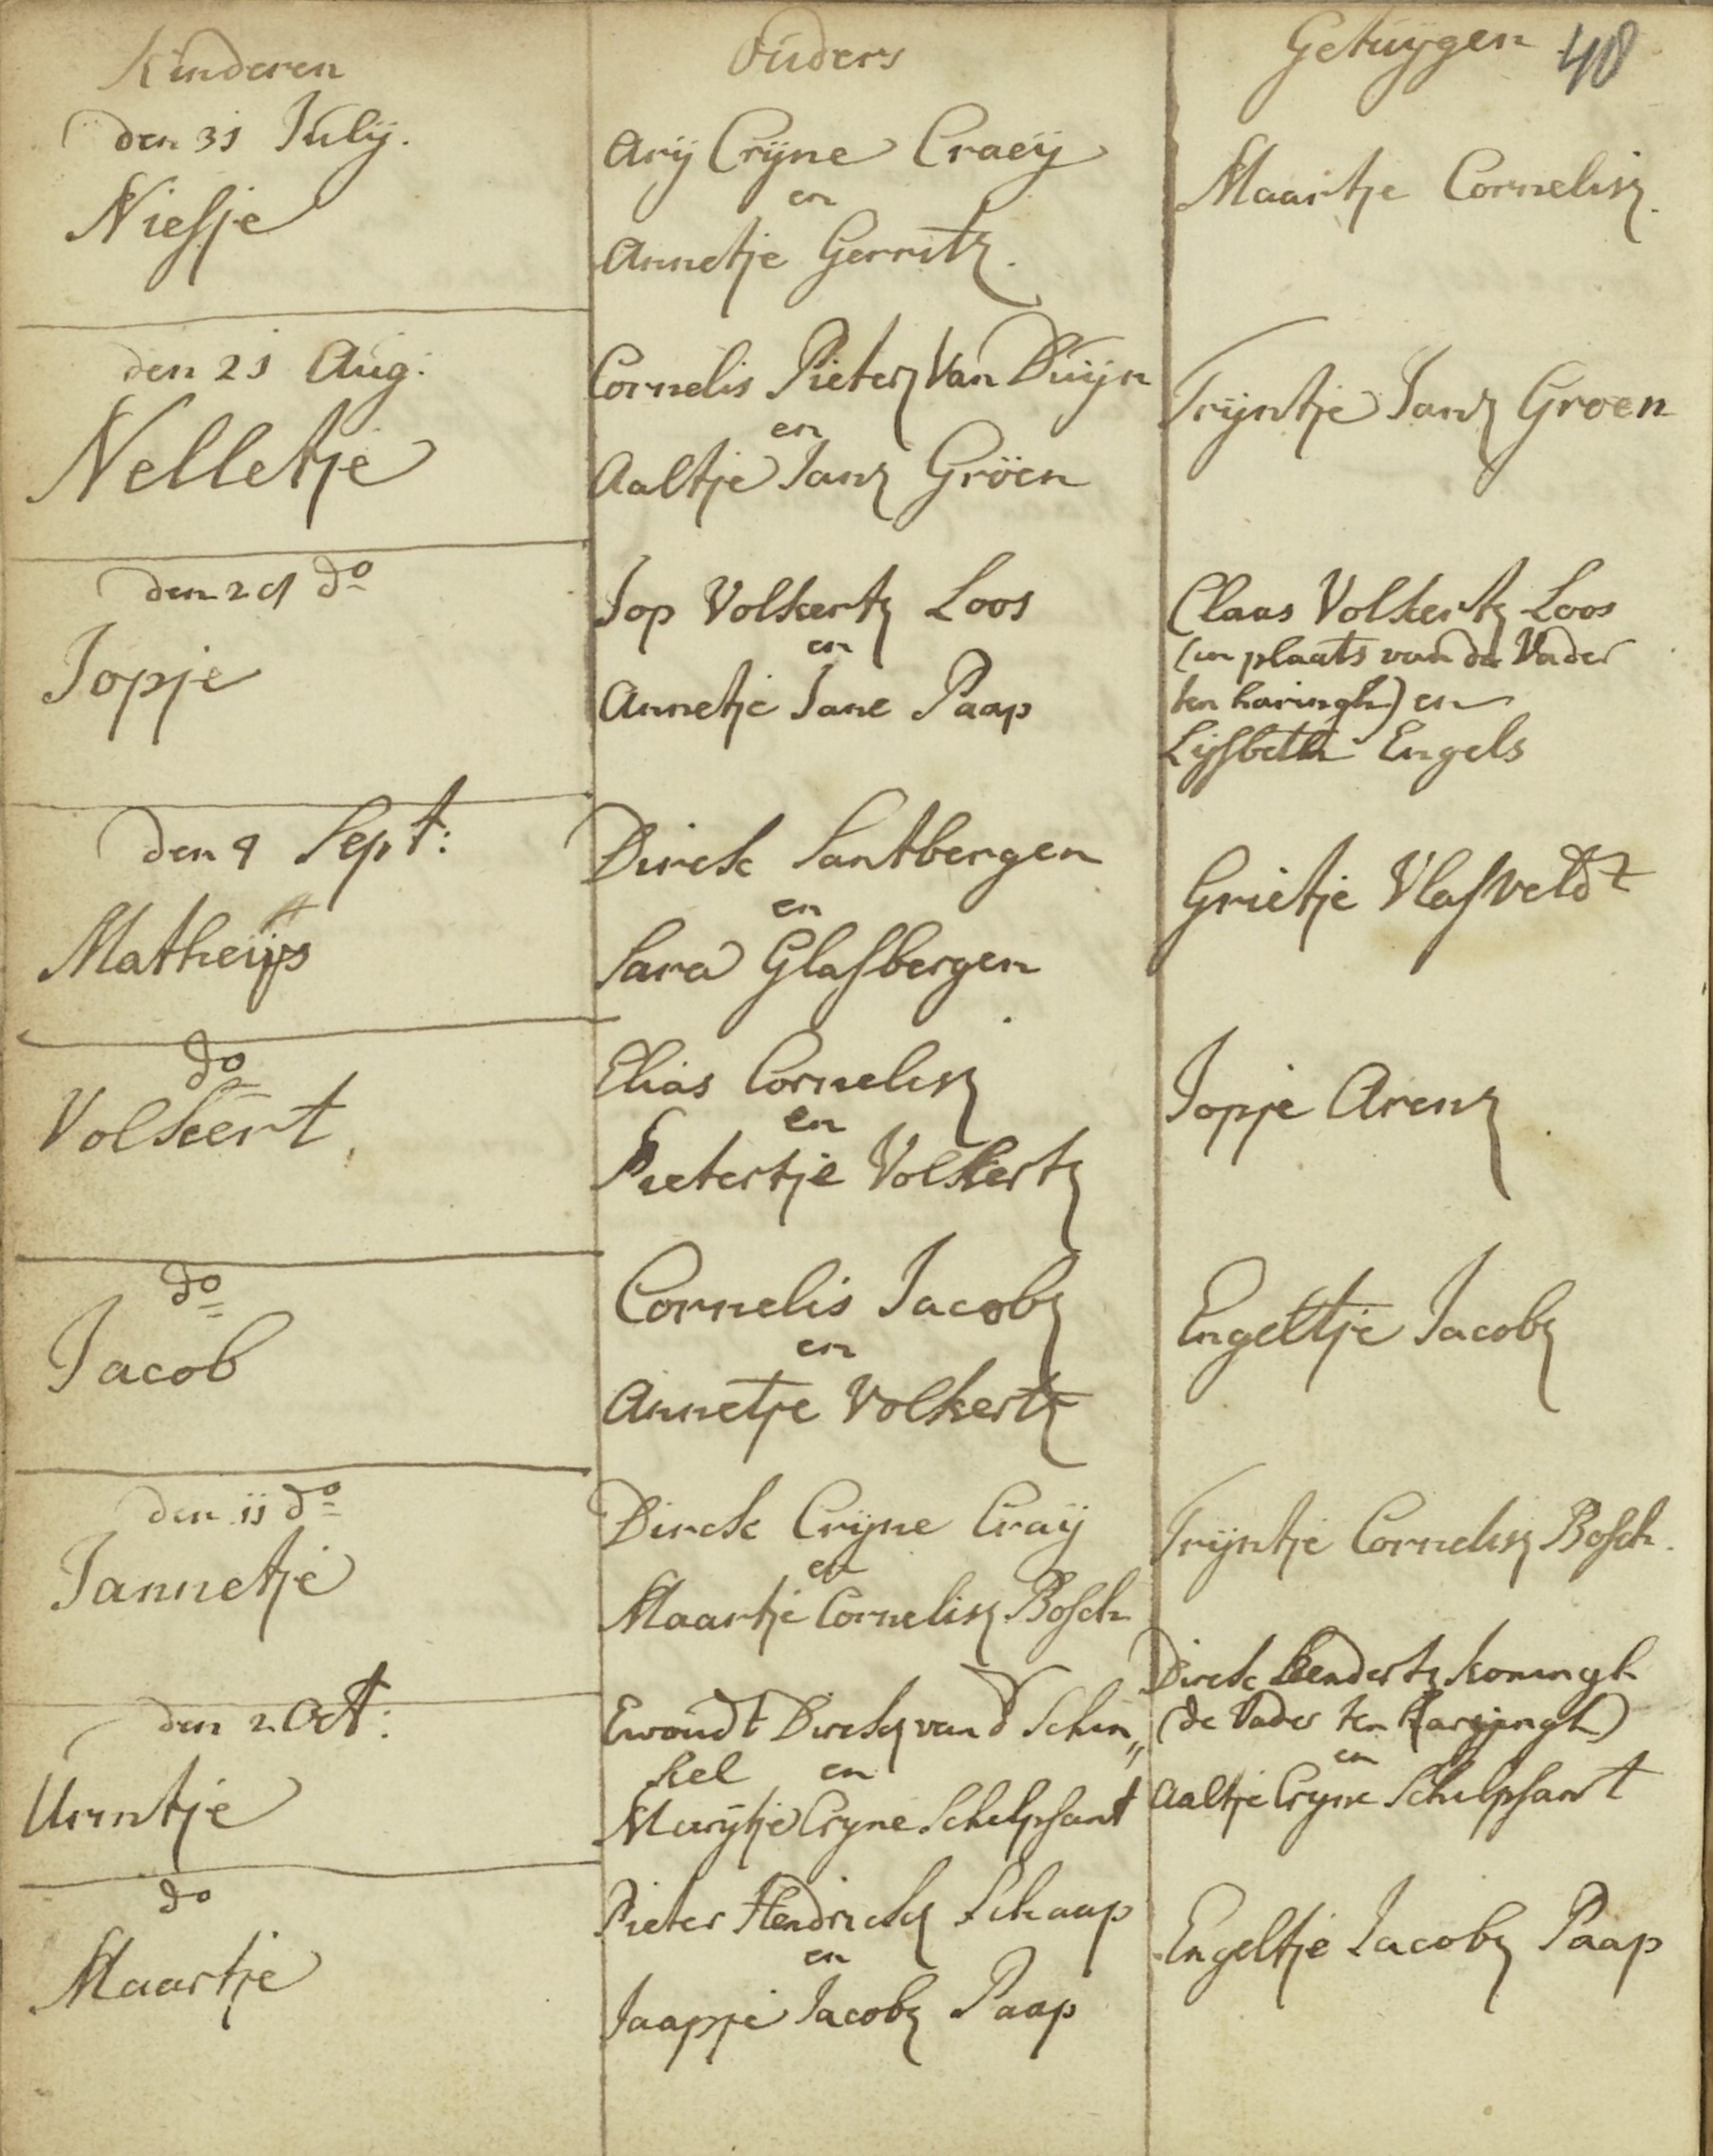 Kinderen
Ouders
Getuijgen
40
den 31 Julij.
Niesje
Arij Crijne Craeij
en
Annetje Gerritz.
Maartje Cornelisz.
den 21 Aug:
Nelletje
Cornelis Pieterz Van Duijn
en
Aaltje Janz Gröen
Trijntje Janz Groen
do
Jopje
Jop Volkertz Loos
en
Annetje Jane Paap
Claas Volkertz Loos
(in plaats van de Vader
ten haringh) en
Lijsbeth Engels
den 4 Sept:
Matheijs
Dirck Santbergen
en
Sara Glasbergen
Grietje Vlasveldt
do
Volkert
Elias Cornelisz
en
Pietertje Volkertz
Jopje Arenz
do
Jacob
Cornelis Jacobz
en
Annetje Volkertz
Engeltje Jacobz
den 11 do
Jannetje
Dirck Crijne Craij
en
Maartje Cornelisz Bosch
Trijntje Cornelisz Bosch.
den 2 Oct:
Ewoudt Dirckz van d Schin„
kel en
Marijtje Cryne Schelpsant
Dirck Leendertz Koningh
(de Vader ten Harijngh)
en
Aaltje Cryne Schelpsant
do
Maartje
Pieter Hendrickz Schaap
en
Jaapje Jacobz Paap
Engeltje Jacobz Paap